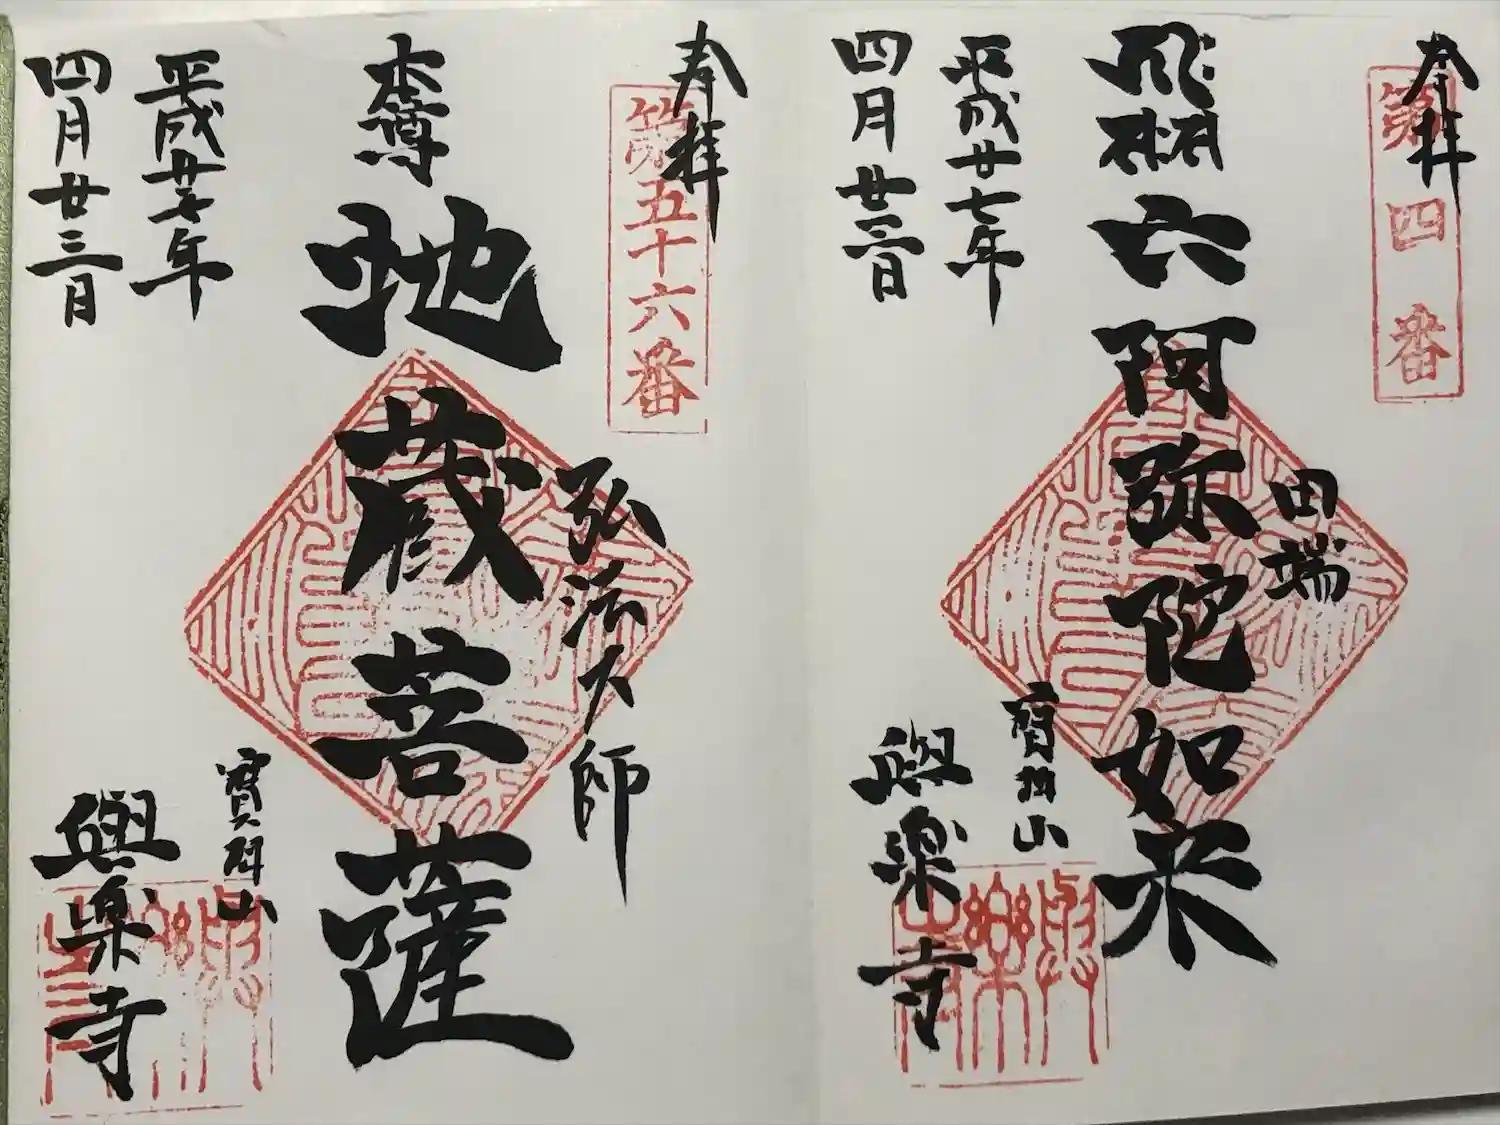 奉拝
第四番
田端
六阿弥陀如来
寳珠山
平成廿七年
四月廿三日
與楽寺
奉拝
第五十六番
弘法大師
本尊
地蔵菩薩
寳珠山
平成廿七年
四月廿三日
與楽寺